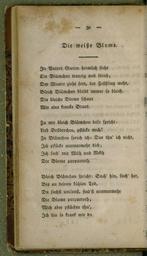 — 30 —
Die weiße Blume.
In Vaters Garten heimlich steht
Ein Blümchen traurig und bleich;
Der Winter zieht fort, der Frühling weht,
Bleich Blümchen bleibt immer so bleich.
Die bleiche Blume schaut
Wie eine kranke Braut.
Zu mir bleich Blümchen leise spricht:
Lieb Brüderchen, pflücke mich!
Zu Blümchen sprech ich: Das thu' ich nicht,
Ich pflücke nimmermehr dich;
Ich such' mit Müh und Noth
Die Blume purpurroth.
Bleich Blümchen spricht: Such' hin, such' her,
Bis an deinen kühlen Tod,
Du suchst umsonst, find'st nimmermehr
Die Blume purpurroth;
Mich aber pflücken thu',
Ich bin so krank wie du.